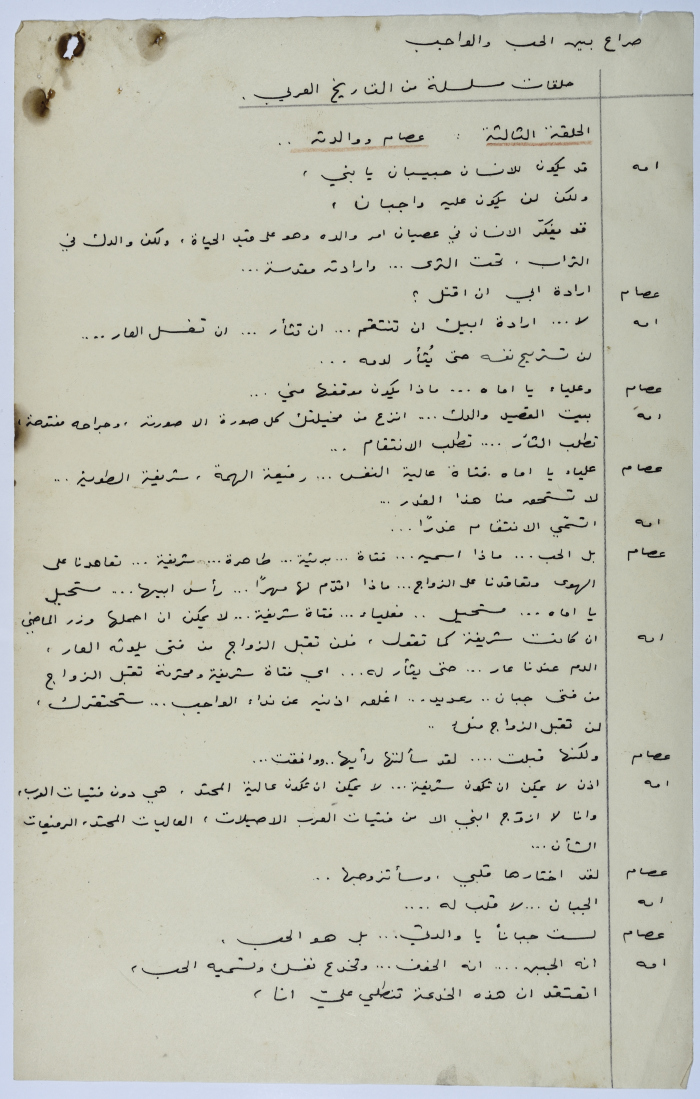 صراع بين الحب والواجب
حلقات مسلسلة من التاريخ العربي .
الحلقة الثالثة : عصام ووالدته ..
امه قد يكون للانسان حبيبان يا بني ،
ولكن لن يكون عليه واجبان ،
قد يفكّر الانسان في عصيان امر والده وهو على قيد الحياة ، ولكن والدك في
التراب ، تحت الثرى ... وارادته مقدسة ...
عصام ارادة ابي ان اقتل ؟
امه لا ... ارادة ابيك ان تنتقم ... ان تثأر ... ان تغسل العار ....
لن تستريح نفسه حتى يُثأر لدمه ...
عصام وعلياء يا اماه ... ماذا يكون موقفها مني ...
امه بيت القصيد والدك ... انزع من مخيلتك كل صورة الا صورته ، وجراحه مفتحة ،
تطلب الثأر .... تطلب الانتقام ...
عصام علياء يا اماه فتاة عالية النفس ... رفيعة الهمة ، شريفة الطوية ...
لا تستحق منا هذا الغدر ...
امه اتسمي الانتقام غدرًا ...
عصام بل الحب ... ماذا اسميه ... فتاة ... بريئة ... طاهرة ... شريفة ... تعاهدنا على
الهوى وتعاقدنا على الزواج ... ماذا اقدّم لها مهرًا ... رأس ابيها ... مستحيل
يا اماه ... مستحيل .. فعلياء ... فتاة شريفة ... لا يمكن ان احملها وزر الماضي
امه ان كانت شريفة كما تقول ، فلن تقبل الزواج من فتى يلوثه العار ،
الدم عندنا عار ... حتى يثأر له ... اي فتاة شريفة ومحترمة تقبل الزواج
من فتى جبان .. رعديد .. اغلق اذنيه عن نداء الواجب ... ستحتقرك ،
لن تقبل الزواج منك ..
عصام ولكنها قبلت .... لقد سألتها رأيها .. ووافقت ...
امه اذن لا يمكن ان تكون شريفة ... لا يمكن ان تكون عالية المحتد ، هي دون فتيات العرب ،
وانا لا ازوّج ابني الا من فتيات العرب الاصيلات ، العاليات المحتد ، الرفيعات
الشأن ...
عصام لقد اختارها قلبي ، وسأتزوجها ..
امه الجبان ... لا قلب له ....
عصام لست جباناً يا والدتي ... بل هو الحب .
امه انه الجبن .... انه الخوف ... وتخدع نفسك وتسميه الحب ،
اتعتقد ان هذه الخدعة تنطلي عليّ انا ،